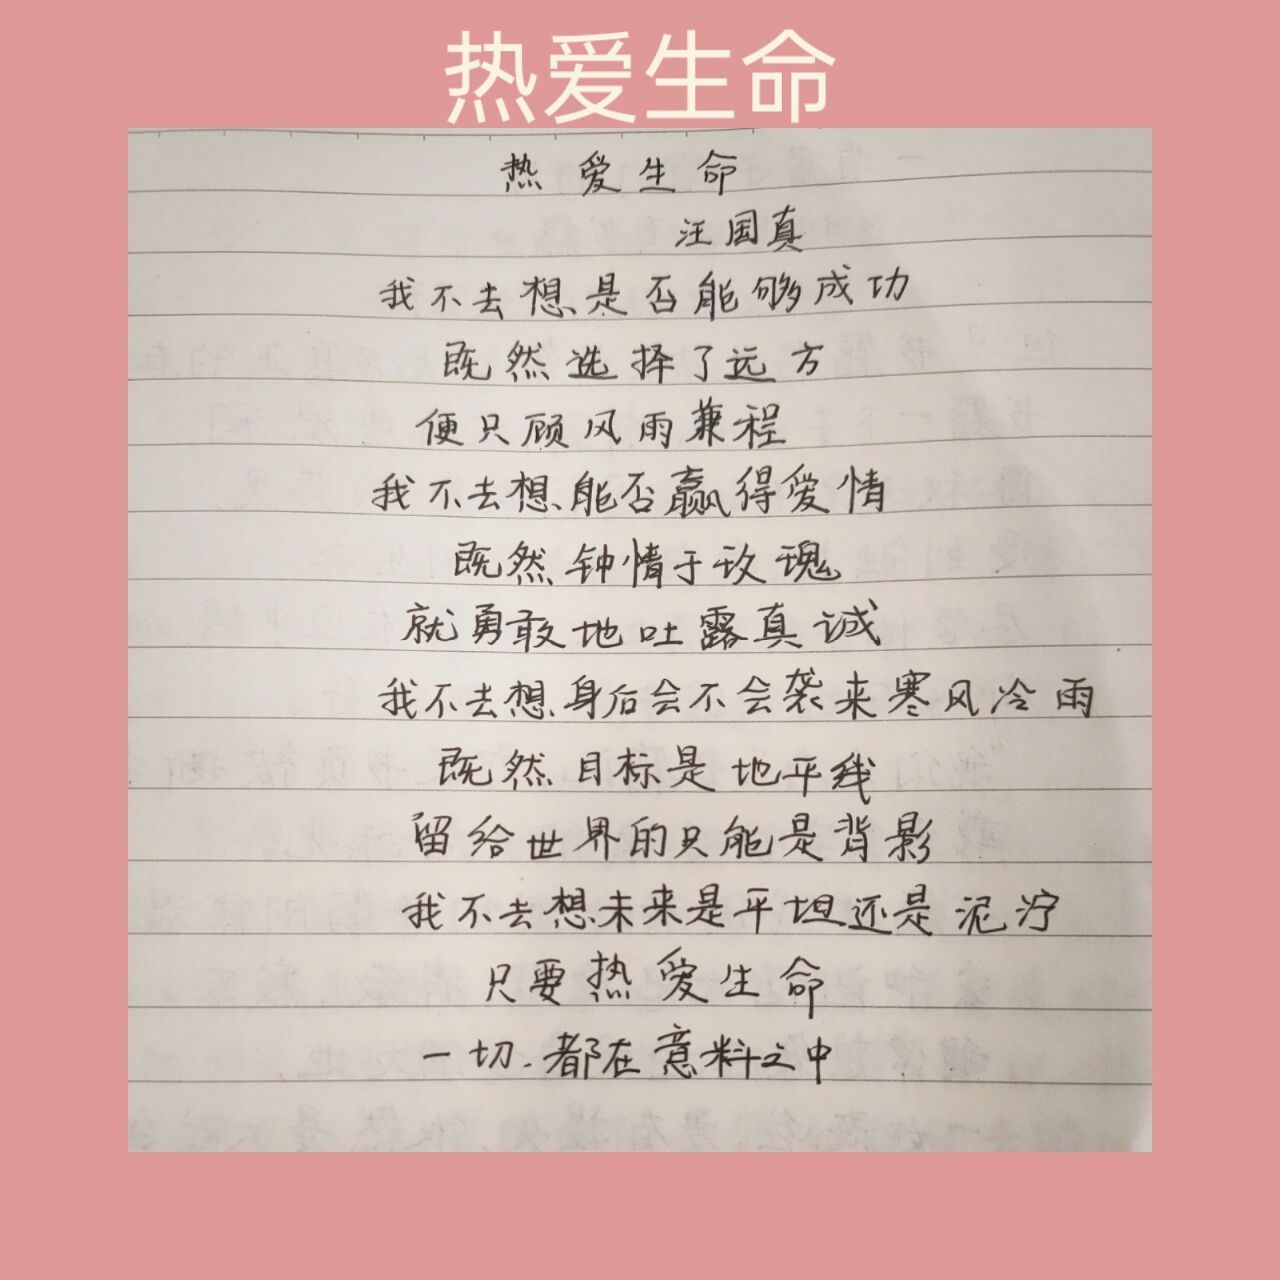 热爱生命
热爱生命
汪国真
我不去想是否能够成功
既然选择了远方
便只顾风雨兼程
我不去想能否赢得爱情
既然钟情于玫瑰
就勇敢地吐露真诚
我不去想身后会不会袭来寒风冷雨
既然目标是地平线
留给世界的只能是背影
我不去想未来是平坦还是泥泞
只要热爱生命
一切.都在意料之中